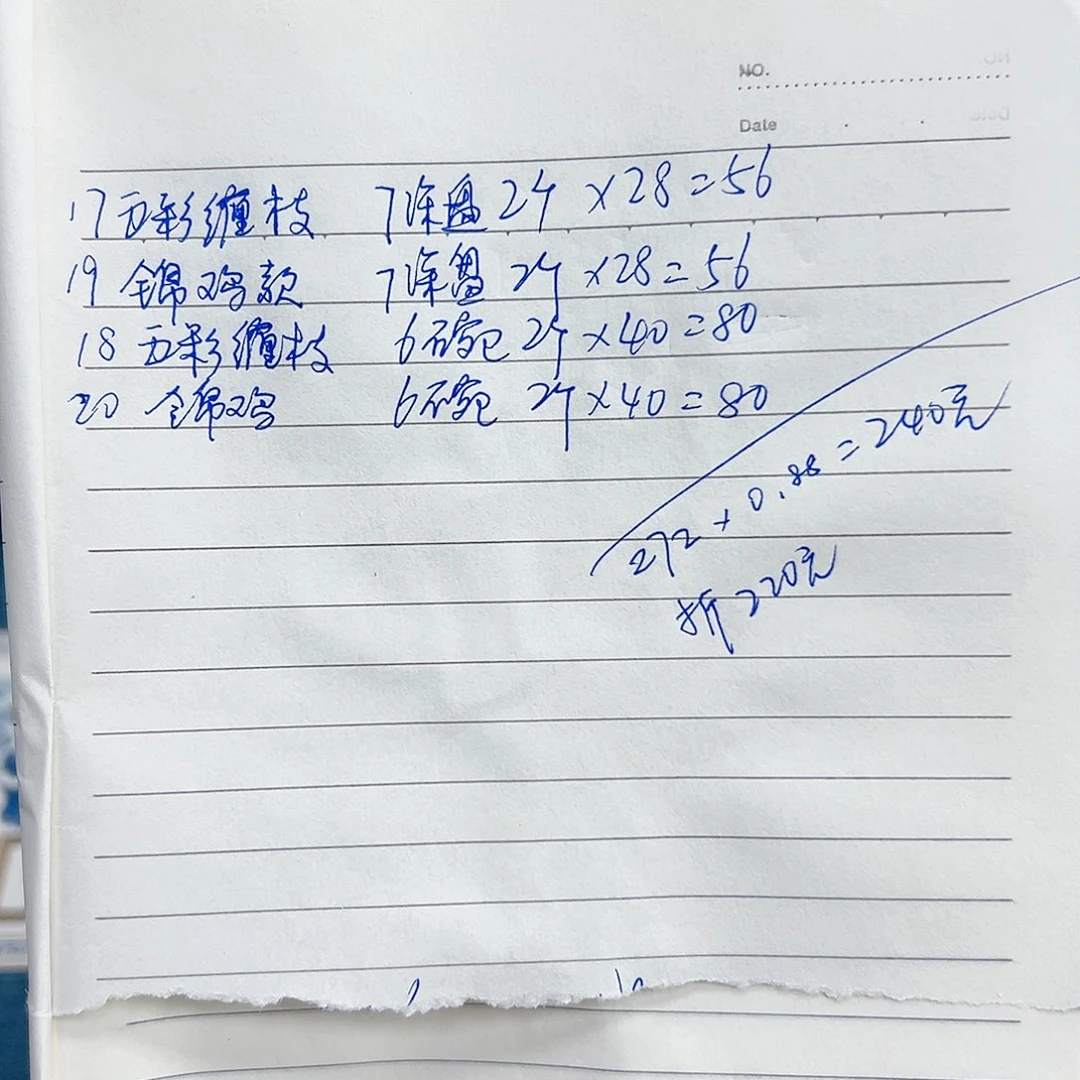 NO.
Date
17 五彩缠枝 7深盘 2个 ×28=56
19 锦鸡款 7深盘 2个 ×28=56
18 五彩缠枝 6碗 2个 ×40=80
20 锦鸡 6碗 2个 ×40=80
272 + 0.88 = 240元
折220元